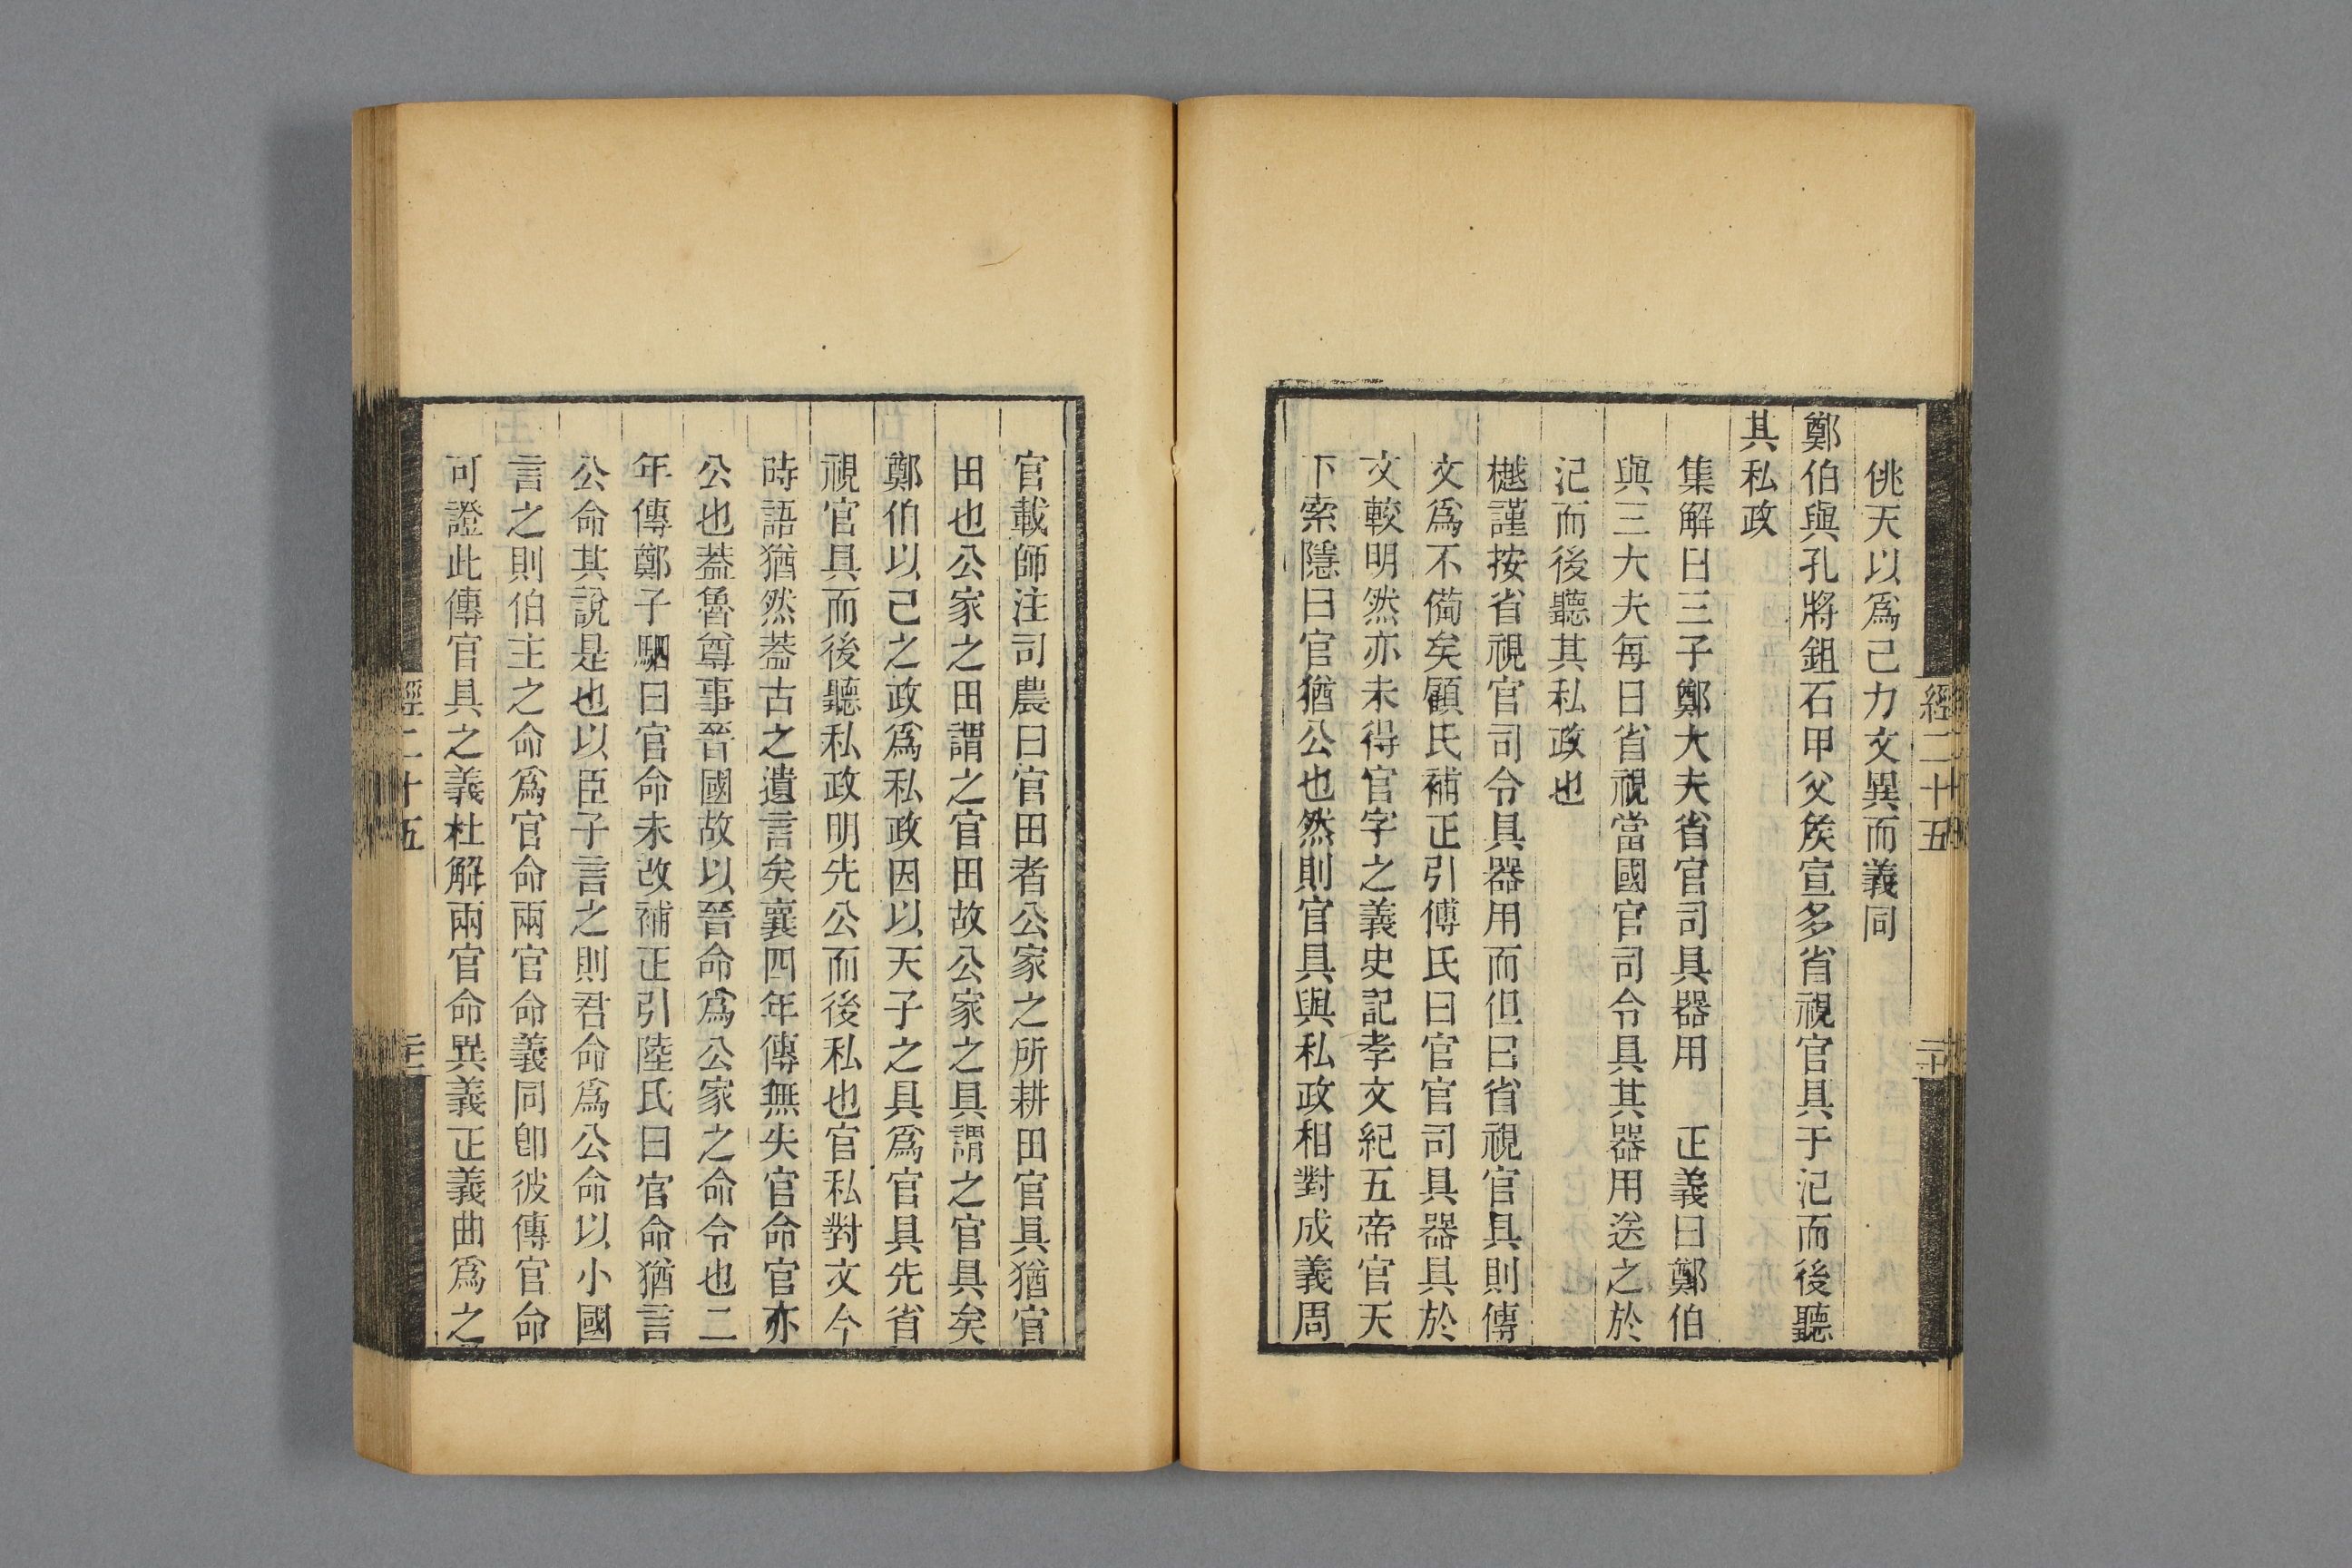 經二十五
二十
佻天以爲己力文異而義同
鄭伯與孔將鉏石甲父矦宣多省視官具于氾而後聽
其私政
集解曰三子鄭大夫省官司具器用　正義曰鄭伯
與三大夫每日省視當國官司令具其器用送之於
氾而後聽其私政也
樾謹按省視官司令具器用而但曰省視官具則傳
文爲不備矣顧氏補正引傅氏曰官官司具器具於
文較明然亦未得官字之義史記孝文紀五帝官天
下索隱曰官猶公也然則官具與私政相對成義周
官載師注司農曰官田者公家之所耕田官具猶官
田也公家之田謂之官田故公家之具謂之官具矣
鄭伯以己之政爲私政因以天子之具爲官具先省
視官具而後聽私政明先公而後私也官私對文今
時語猶然蓋古之遺言矣襄四年傳無失官命官亦
公也葢魯尊事晉國故以晉命爲公家之命令也二
年傳鄭子駟曰官命未改補正引陸氏曰官命猶言
公命其說是也以臣子言之則君命爲公命以小國
言之則伯主之命爲官命兩官命義同卽彼傳官命
可證此傳官具之義杜解兩官命異義正義曲爲之
經二十五